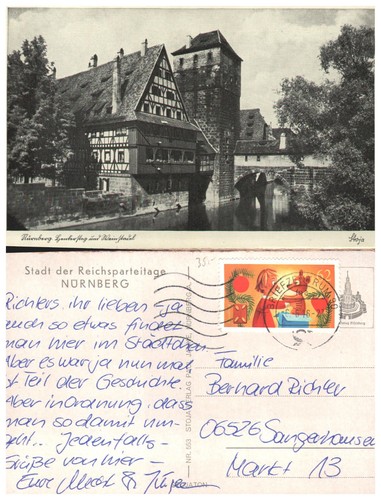 Nürnberg. Henkersteg und Weinstadl
Stoja
Stadt der Reichsparteitage
NÜRNBERG
35,-
Richters, ihr lieben - ja
auch so etwas findet
man hier im Städtchen.
Aber es war ja nun mal
ist Teil der Geschichte.
Aber in Ordnung, dass
man so damit um-
geht... Jedenfalls -
Grüße von hier -
Eure
NR. 553 STOJA-VERLAG
BRIEFZENTRUM
Familie
Bernard Richter
06526 Sangerhausen
Markt 13